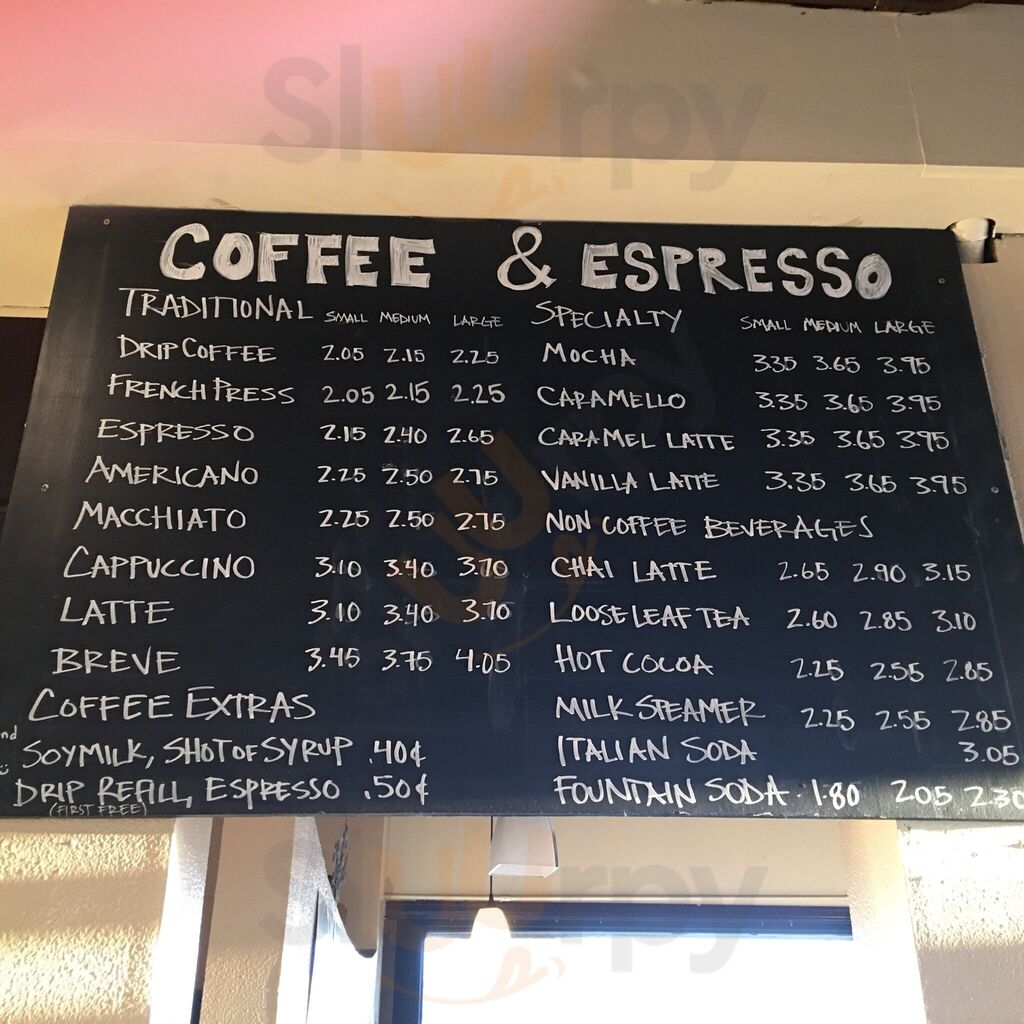 COFFEE & ESPRESSO
TRADITIONAL SMALL MEDIUM LARGE
DRIP COFFEE 2.05 2.15 2.25
FRENCH PRESS 2.05 2.15 2.25
ESPRESSO 2.15 2.40 2.65
AMERICANO 2.25 2.50 2.75
MACCHIATO 2.25 2.50 2.75
CAPPUCCINO 3.10 3.40 3.70
LATTE 3.10 3.40 3.70
BREVE 3.45 3.75 4.05
COFFEE EXTRAS
SOYMILK, SHOT OF SYRUP .40¢
DRIP REFILL, ESPRESSO .50¢
(FIRST FREE)
SPECIALTY SMALL MEDIUM LARGE
MOCHA 3.35 3.65 3.95
CARAMELLO 3.35 3.65 3.95
CARAMEL LATTE 3.35 3.65 3.95
VANILLA LATTE 3.35 3.65 3.95
NON COFFEE BEVERAGES
CHAI LATTE 2.65 2.90 3.15
LOOSE LEAF TEA 2.60 2.85 3.10
HOT COCOA 2.25 2.55 2.85
MILK STEAMER 2.25 2.55 2.85
ITALIAN SODA 3.05
FOUNTAIN SODA . 1.80 2.05 2.30
Sluurpy
Sluurpy